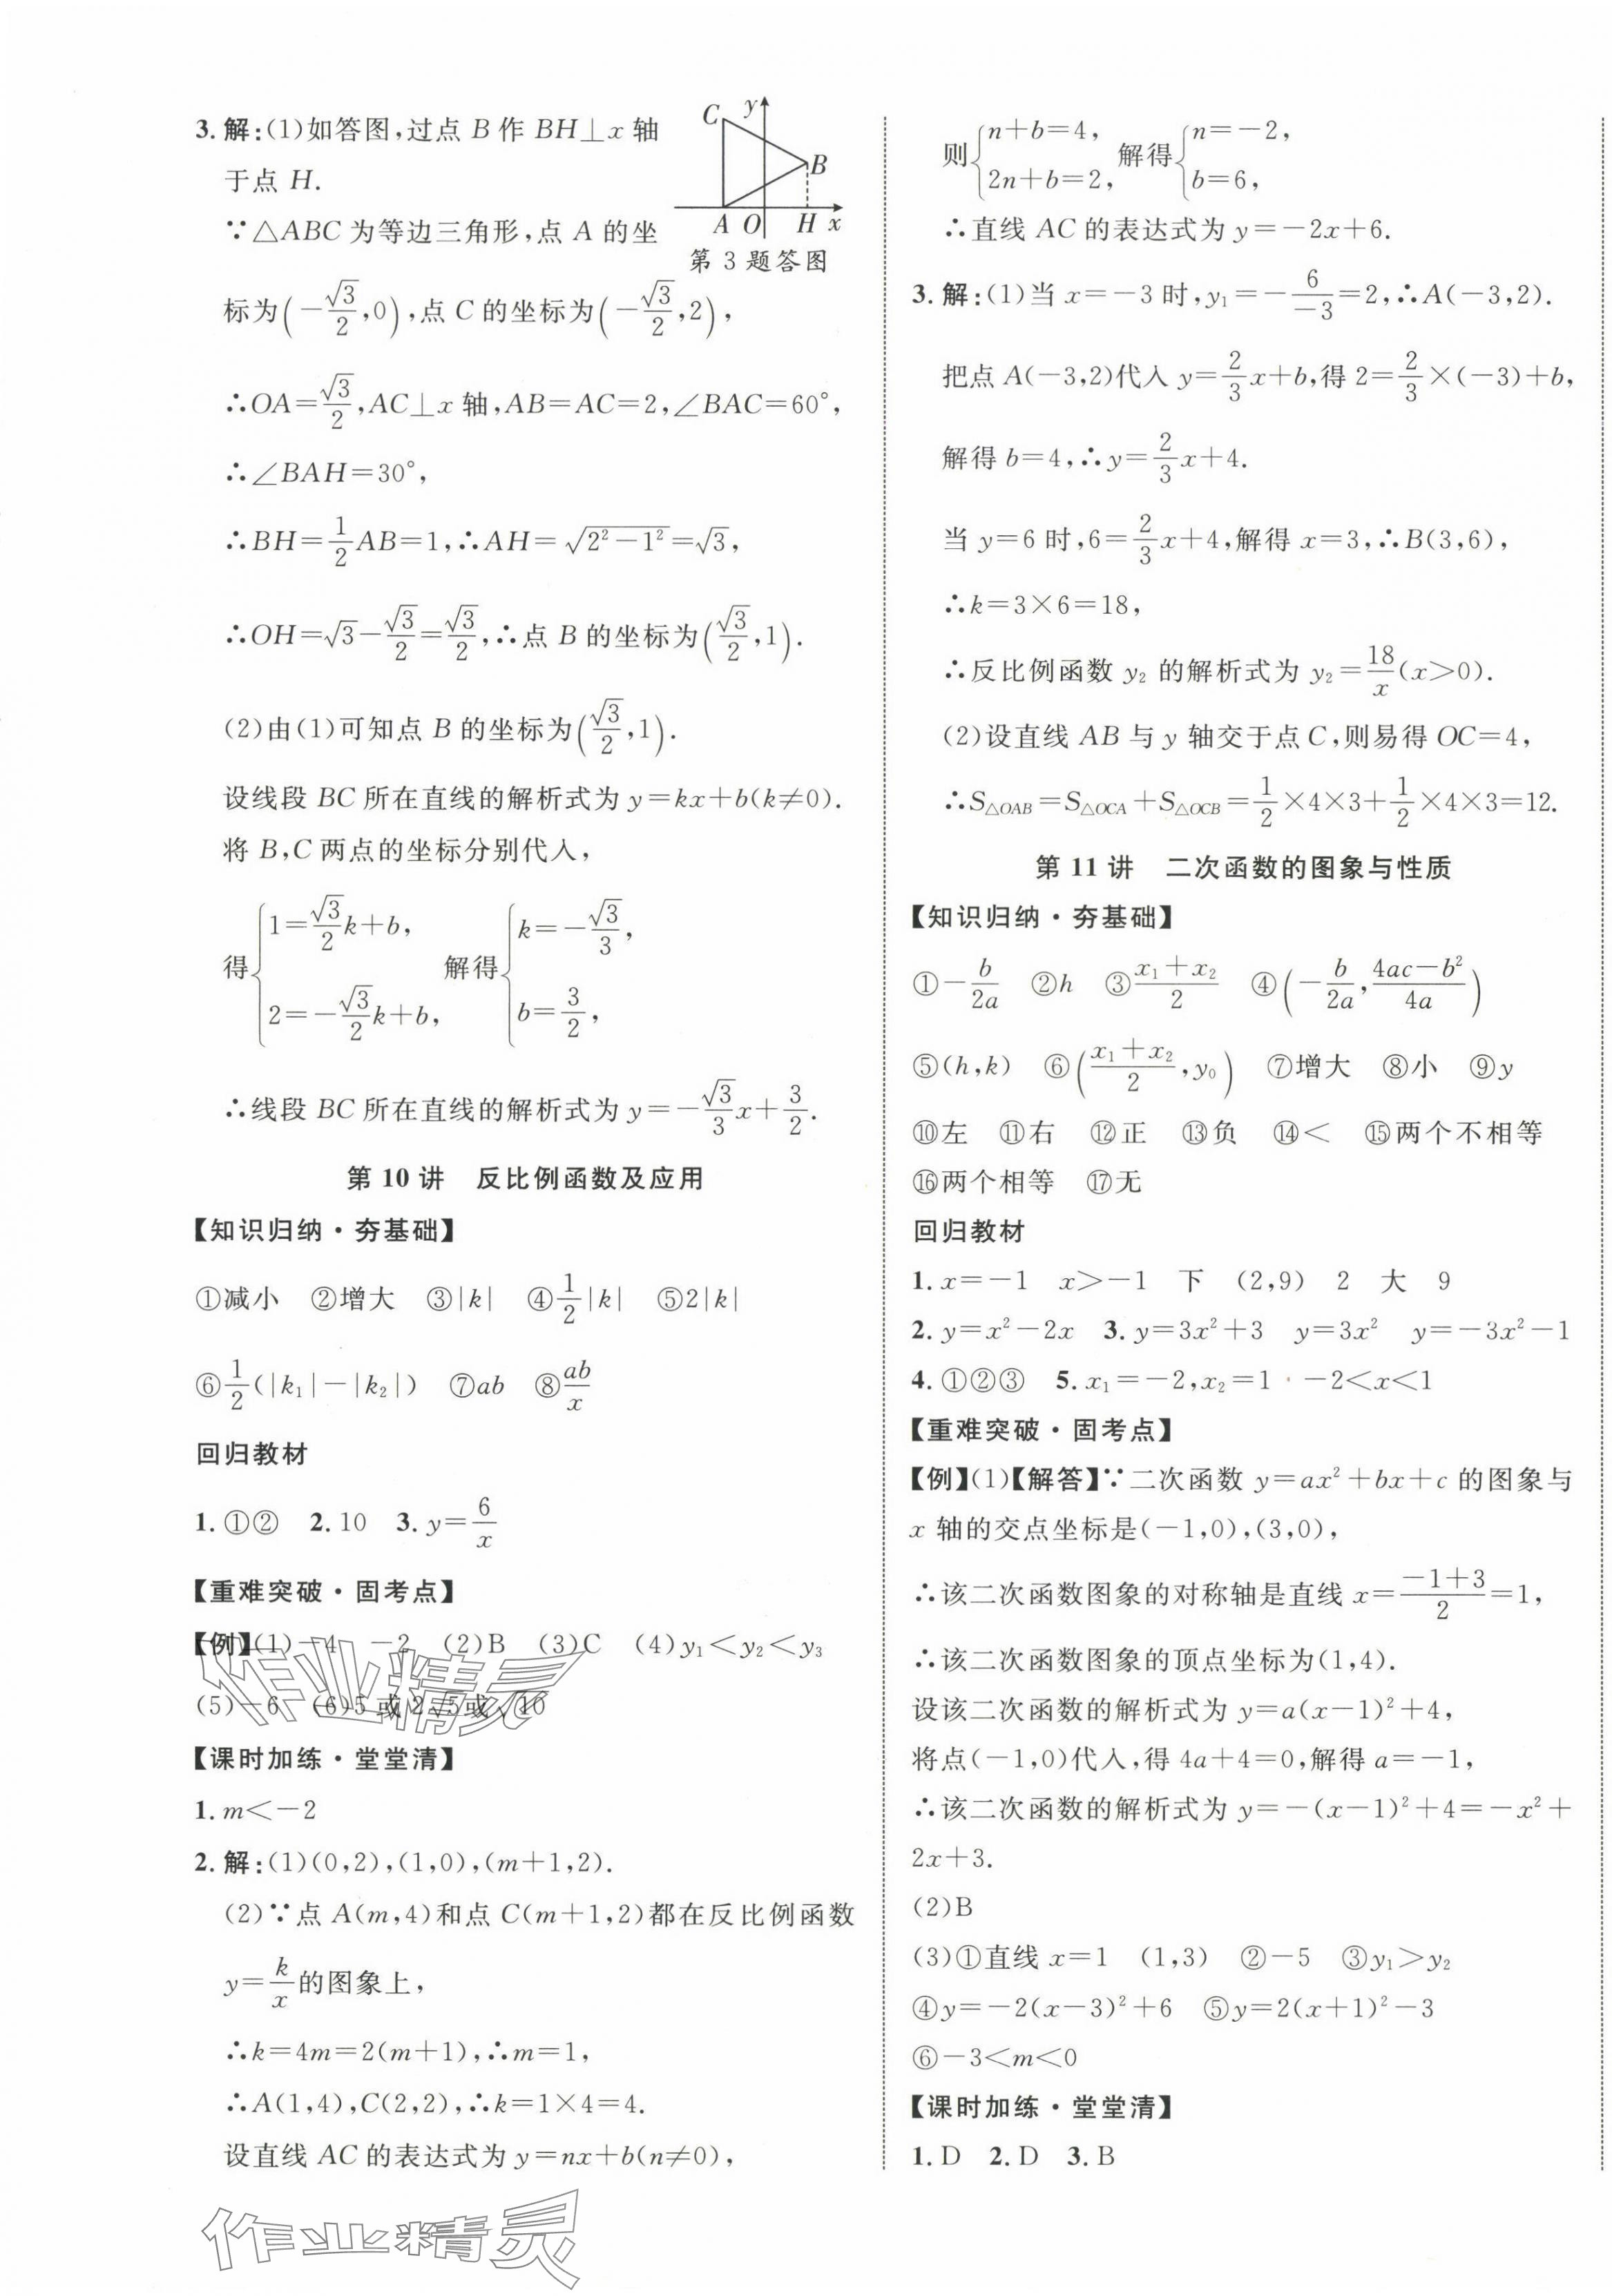 3. 解:(1)如答图,过点 B 作 BH⊥x 轴
于点 H.
∵△ABC 为等边三角形,点 A 的坐
标为(-√3/2,0),点 C 的坐标为(-√3/2,2),
C y B A O H x
第 3 题答图
∴OA=√3/2,AC⊥x 轴,AB=AC=2,∠BAC=60°,
∴∠BAH=30°,
∴BH=1/2AB=1,∴AH=√(2²-1²)=√3,
∴OH=√3-√3/2=√3/2,∴点 B 的坐标为(√3/2,1).
(2)由(1)可知点 B 的坐标为(√3/2,1).
设线段 BC 所在直线的解析式为 y=kx+b(k≠0).
将 B,C 两点的坐标分别代入,
得{1=√3/2k+b, 2=-√3/2k+b, 解得{k=-√3/3, b=3/2,
∴线段 BC 所在直线的解析式为 y=-√3/3x+3/2.
第 10 讲 反比例函数及应用
【知识归纳·夯基础】
①减小 ②增大 ③|k| ④1/2|k| ⑤2|k|
⑥1/2(|k₁|-|k₂|) ⑦ab ⑧ab/x
回归教材
1. ①② 2. 10 3. y=6/x
【重难突破·固考点】
【例】(1)-4 -2 (2)B (3)C (4)y₁<y₂<y₃
(5)-6 (6)5 或 2√5或√10
【课时加练·堂堂清】
1. m<-2
2. 解:(1)(0,2),(1,0),(m+1,2).
(2)∵点 A(m,4)和点 C(m+1,2)都在反比例函数
y=k/x的图象上,
∴k=4m=2(m+1),∴m=1,
∴A(1,4),C(2,2),∴k=1×4=4.
设直线 AC 的表达式为 y=nx+b(n≠0),
则{n+b=4, 2n+b=2, 解得{n=-2, b=6,
∴直线 AC 的表达式为 y=-2x+6.
3. 解:(1)当 x=-3 时,y₁=-6/-3=2,∴A(-3,2).
把点 A(-3,2)代入 y=2/3x+b,得 2=2/3×(-3)+b,
解得 b=4,∴y=2/3x+4.
当 y=6 时,6=2/3x+4,解得 x=3,∴B(3,6),
∴k=3×6=18,
∴反比例函数 y₂ 的解析式为 y₂=18/x(x>0).
(2)设直线 AB 与 y 轴交于点 C,则易得 OC=4,
∴S△OAB=S△OCA+S△OCB=1/2×4×3+1/2×4×3=12.
第 11 讲 二次函数的图象与性质
【知识归纳·夯基础】
①-b/2a ②h ③x₁+x₂/2 ④(-b/2a,4ac-b²/4a)
⑤(h,k) ⑥(x₁+x₂/2,y₀) ⑦增大 ⑧小 ⑨y
⑩左 ⑪右 ⑫正 ⑬负 ⑭< ⑮两个不相等
⑯两个相等 ⑰无
回归教材
1. x=-1 x>-1 下 (2,9) 2 大 9
2. y=x²-2x 3. y=3x²+3 y=3x² y=-3x²-1
4. ①②③ 5. x₁=-2,x₂=1 -2<x<1
【重难突破·固考点】
【例】(1)【解答】∵二次函数 y=ax²+bx+c 的图象与
x 轴的交点坐标是(-1,0),(3,0),
∴该二次函数图象的对称轴是直线 x=-1+3/2=1,
∴该二次函数图象的顶点坐标为(1,4).
设该二次函数的解析式为 y=a(x-1)²+4,
将点(-1,0)代入,得 4a+4=0,解得 a=-1,
∴该二次函数的解析式为 y=-(x-1)²+4=-x²+
2x+3.
(2)B
(3)①直线 x=1 (1,3) ②-5 ③y₁>y₂
④y=-2(x-3)²+6 ⑤y=2(x+1)²-3
⑥-3<m<0
【课时加练·堂堂清】
1. D 2. D 3. B
作业精灵
作业精灵